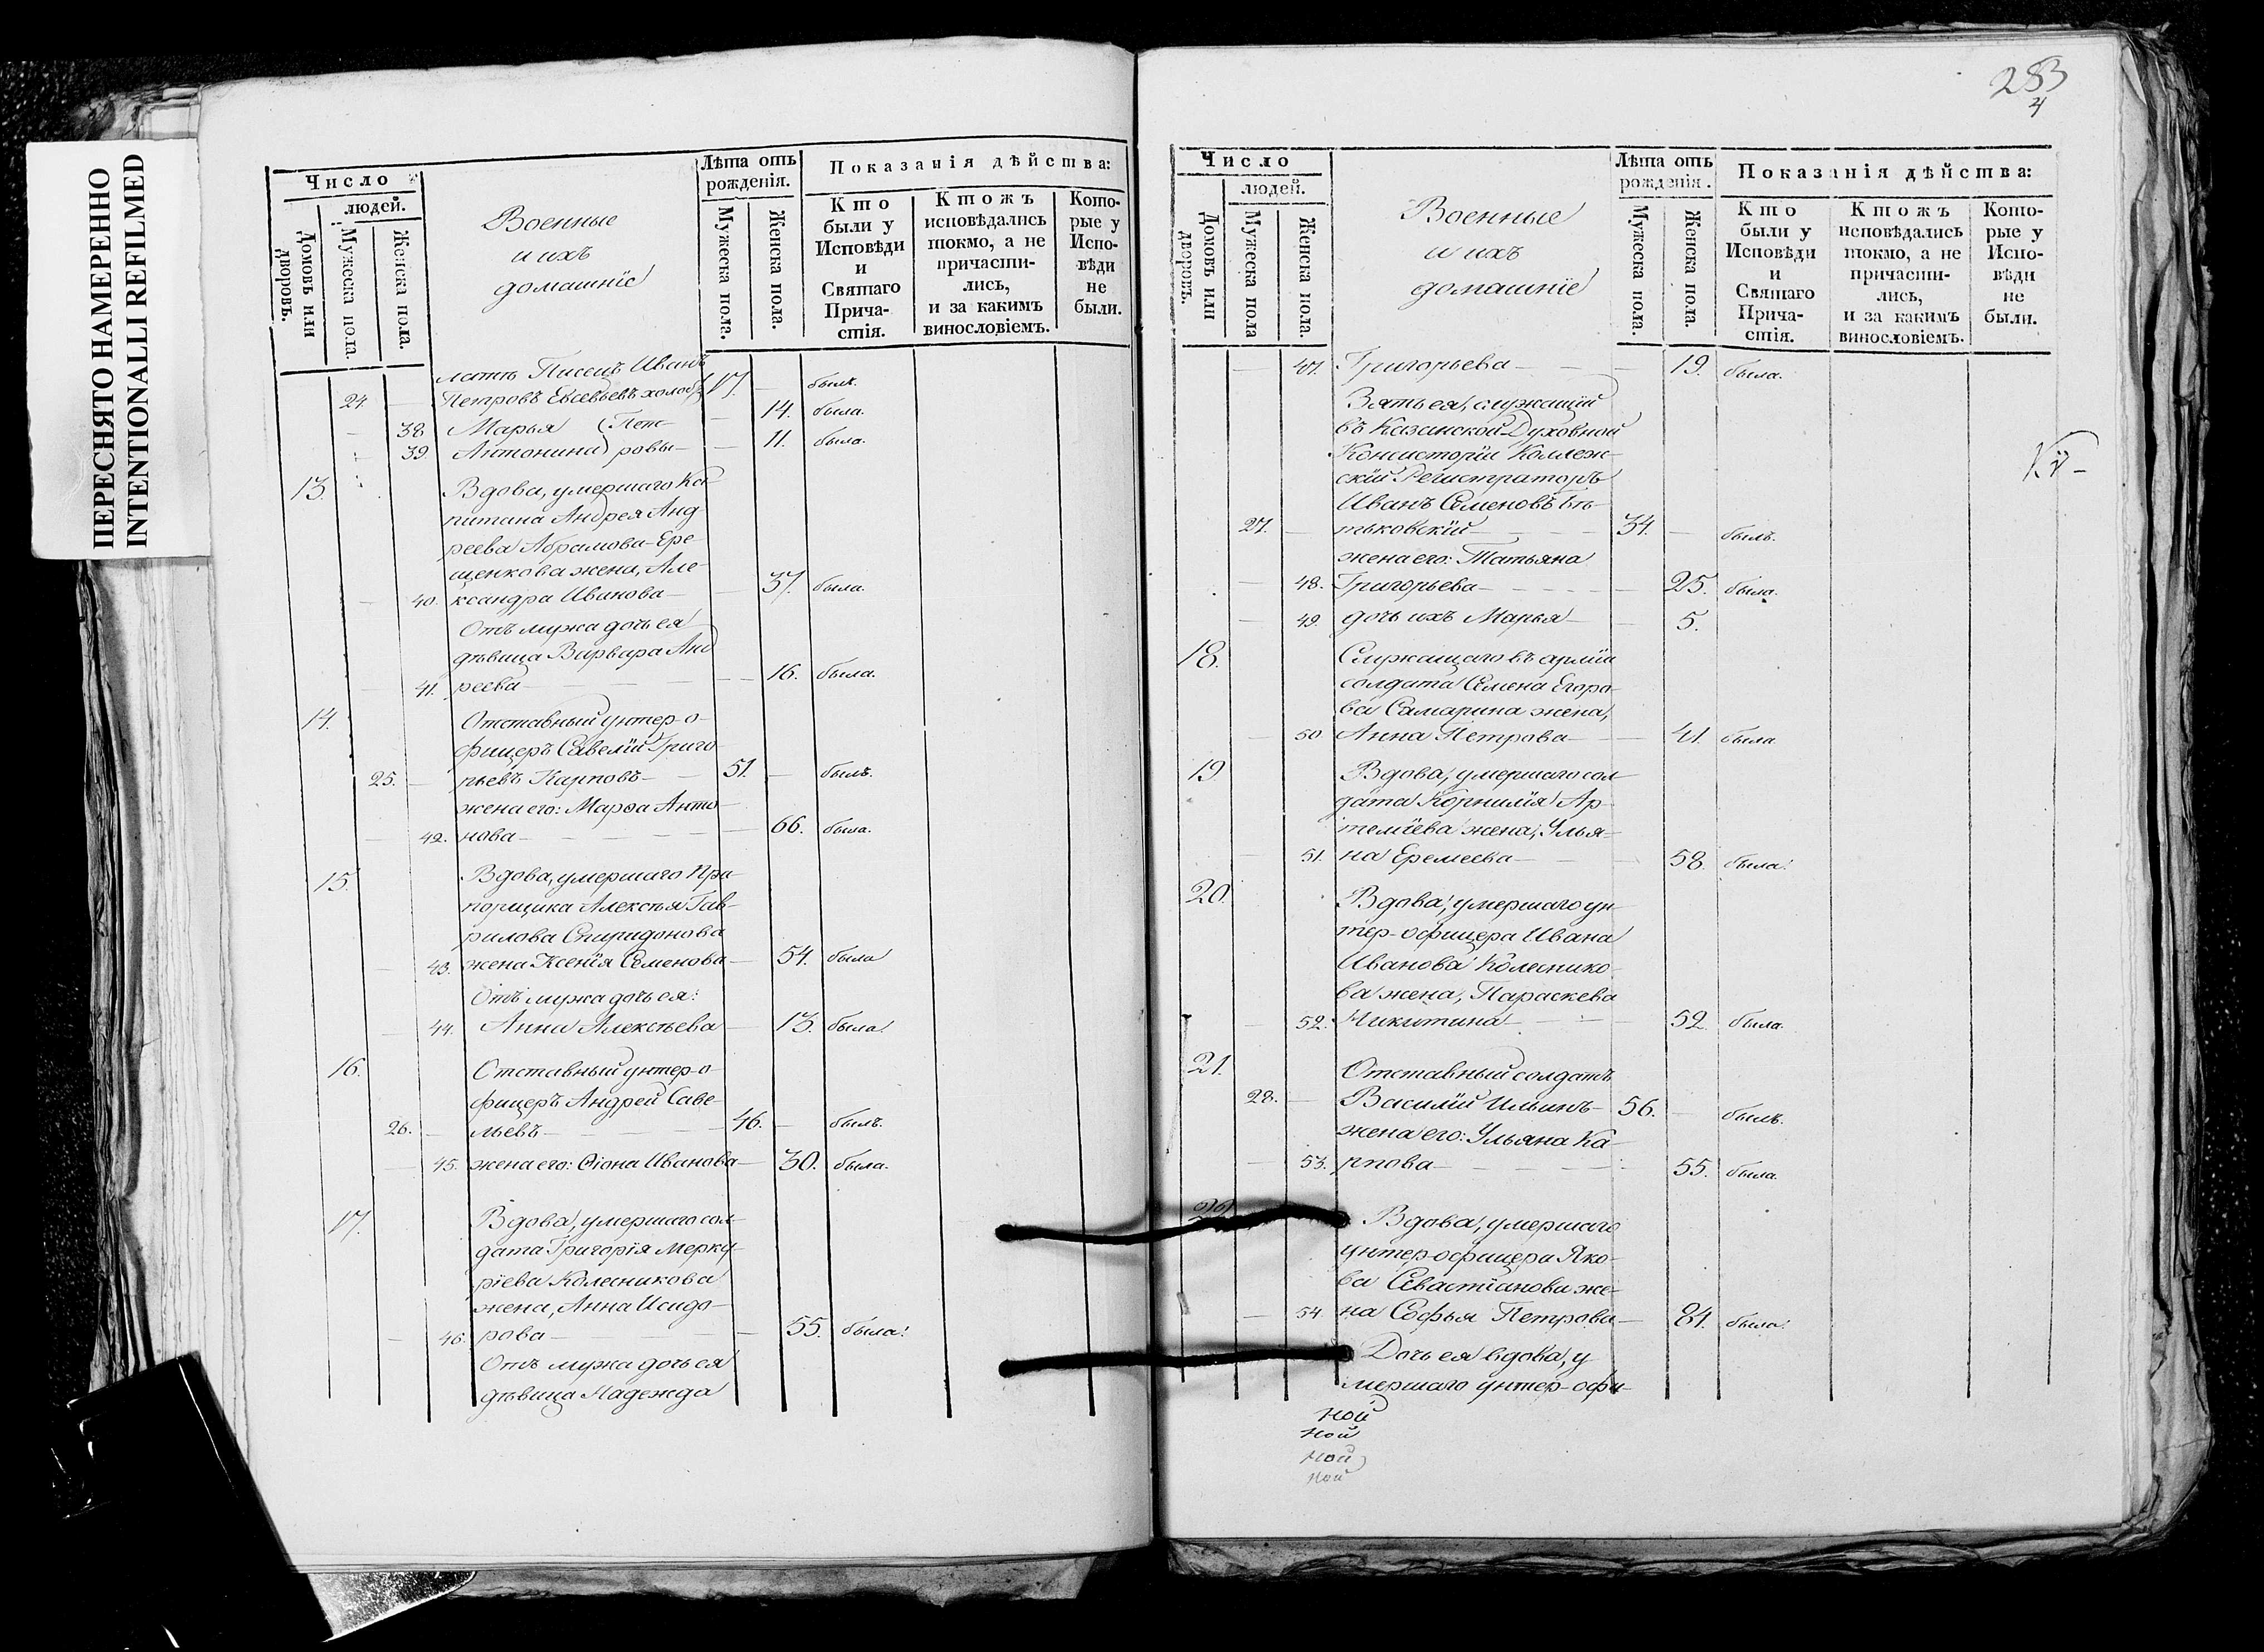 ПЕРЕСНЯТО НАМЕРЕННО
INTENTIONALLI REFILMED
Число
людей.
Домовъ или дворовъ.
Мужеска пола.
Женска пола.
Военные
и ихъ
домашніе
Лѣта отъ рожденія.
Мужеска пола.
Женска пола.
Показанія дѣйства:
Кто были у Исповѣди и Святаго Прича-стія.
Ктожъ исповѣдались токмо, а не причасти-лись, и за какимъ винословіемъ.
Кото-рые у Испо-вѣди не были.
Писецъ Иванъ
24. — Петровъ Евсевьевъ холос 17. — былъ.
— 38 Марья (Пет- — 14. была.
— 39 Антонина) ровы — — 11. была.
13. Вдова, умершаго Ка
питана Андрея Анд
реева Абрамова-Ере
щенкова жена, Але-
— 40. ксандра Иванова — — 37. была.
Отъ мужа дочь ея
дѣвица Варвара Анд
— 41. реева — — 16. была.
14. Отставный унтер-о-
фицеръ Савелій Григо
25. — рьевъ Карповъ — 51. — былъ.
жена его: Марѳа Анто-
— 42. нова — — 66. была.
15. Вдова, умершаго Пра-
порщика Алексѣя Гав-
рилова Спиридонова
— 43. жена Ксенія Семенова — 54. была
Отъ мужа дочь ея:
— 44. Анна Алексѣева — 13. была.
16. Отставный унтер-о-
фицеръ Андрей Саве-
26. — льевъ — 46. — былъ.
— 45. жена его: Ѳіона Иванова — 30. была.
17. Вдова, умершаго сол-
дата Григорія Мерку-
ріева Колесникова
жена, Анна Исидо-
— 46. рова — — 55. была.
Отъ мужа дочь ея
дѣвица Надежда
283
4
Число
людей.
Домовъ или дворовъ.
Мужеска пола
Женска пола.
Военные
и ихъ
домашніе
Лѣта отъ рожденія.
Мужеска пола.
Женска пола.
Показанія дѣйства:
Кто были у Исповѣди и Святаго Прича-стія.
Ктожъ исповѣдались токмо, а не причасти-лись, и за какимъ винословіемъ.
Кото-рые у Испо-вѣди не были.
— 47. Григорьева — — 19. была.
Зять ея, служащій
въ Казанской Духовной
Консисторіи Коллеж-
скій Регистраторъ
Иванъ Семеновъ Бѣ-
27. — тьковскій — 34. — былъ.
жена его: Татьяна
— 48. Григорьева — — 25. была.
— 49. дочь ихъ Марья — — 5.
18. Служащаго въ арміи
солдата Семена Егоро-
ва Самарина жена,
— 50 Анна Петрова — — 41. была.
19. Вдова, умершаго сол
дата Корнилія Ар-
теміева жена, Улья-
— 51. на Еремеева — — 58. была.
20. Вдова, умершаго ун-
тер-офицера Ивана
Иванова Колеснико-
ва жена, Параскева
— 52. Никитина — — 52. была.
21. Отставный солдатъ
28. — Василій Ильинъ — 56. — былъ.
жена его: Ульяна Ка-
— 53. рпова — — 55. была.
22 Вдова, умершаго
унтер-офицера Яко-
ва Севастіанова же-
— 54. на Софья Петрова — 84. была.
Дочь ея вдова, у
мершаго унтер-офи-
ной
ной
ной
ной